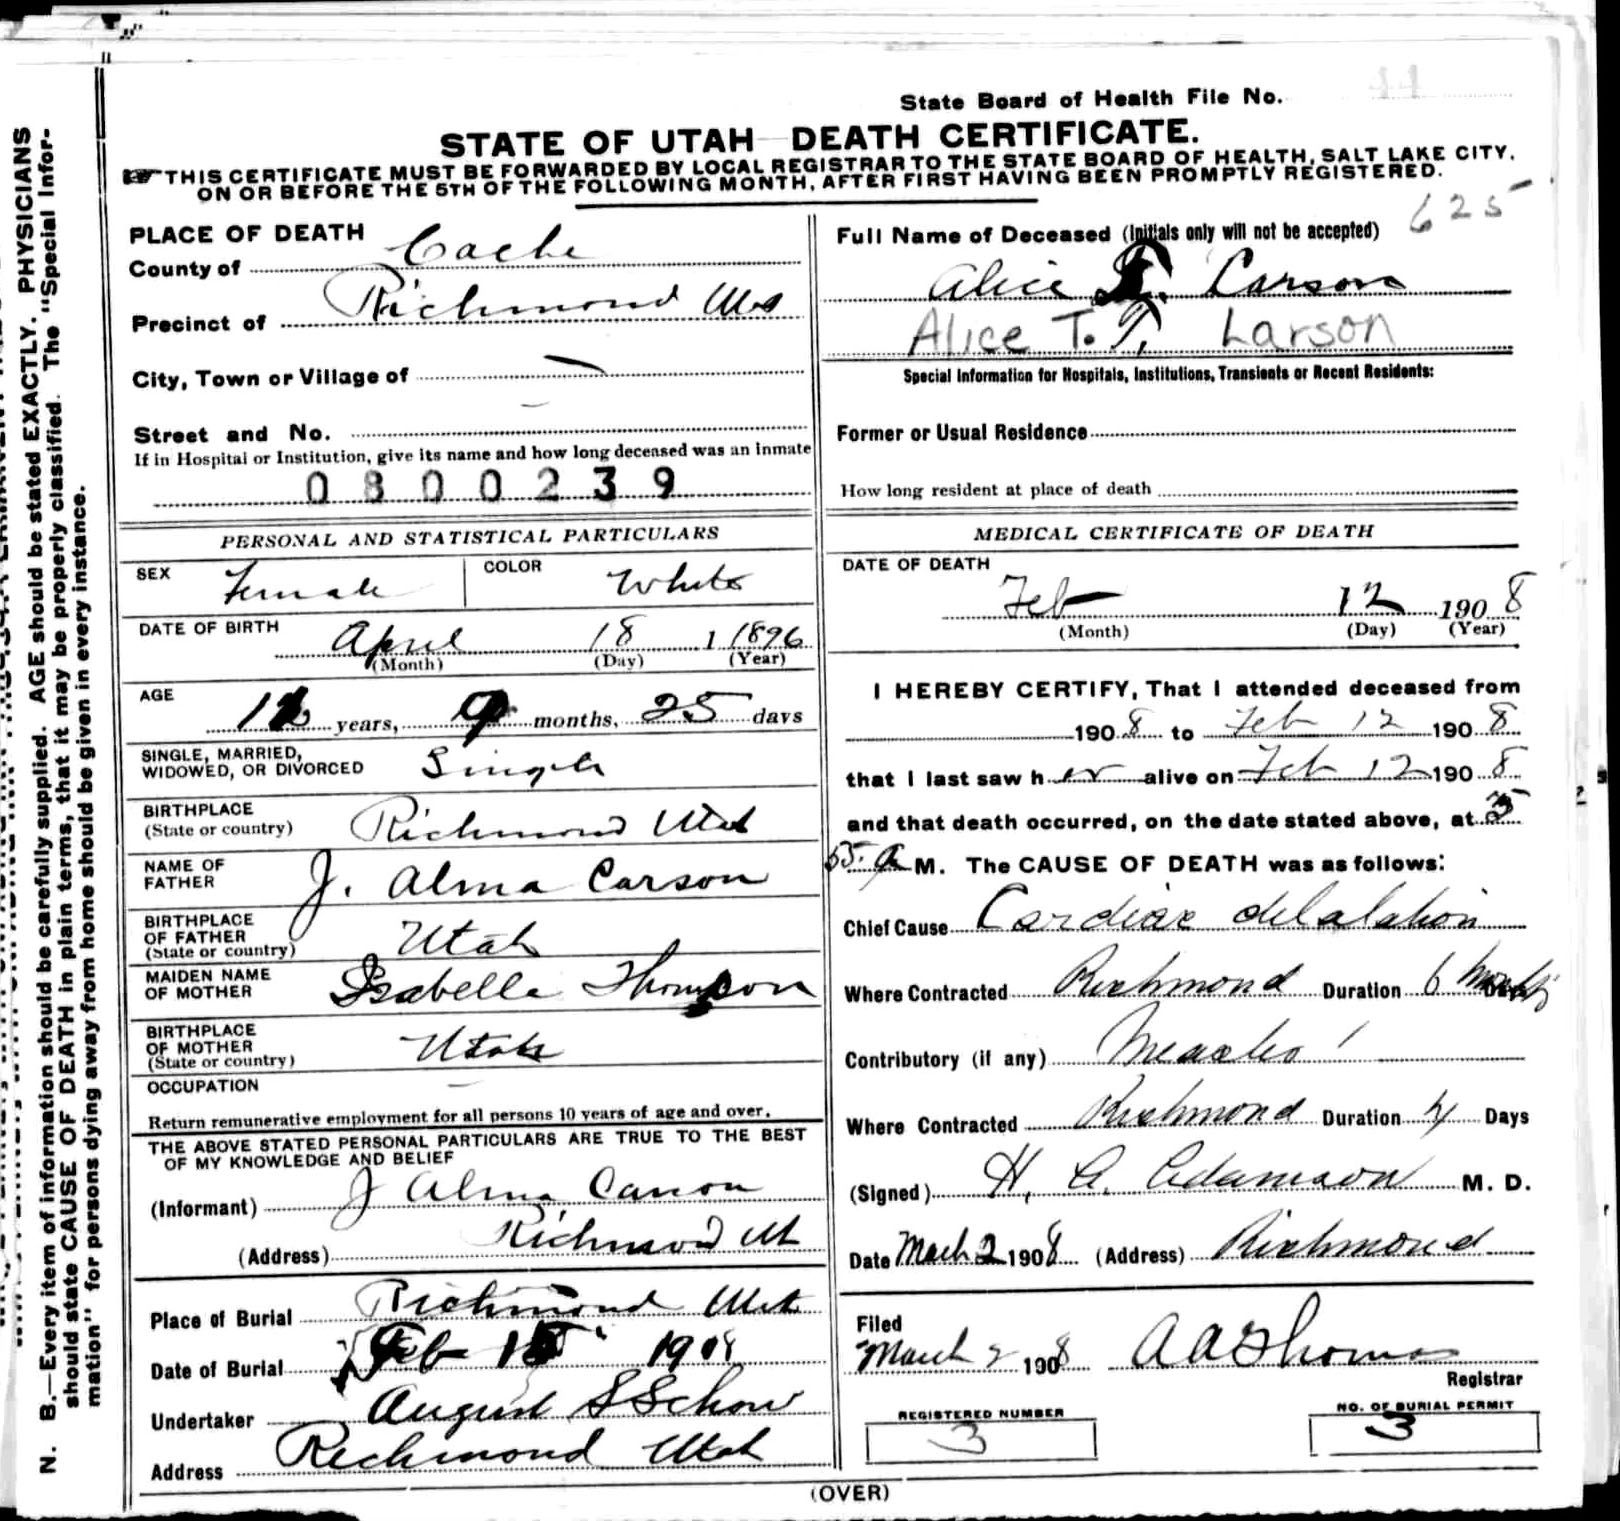 State Board of Health File No. 44
STATE OF UTAH DEATH CERTIFICATE.
THIS CERTIFICATE MUST BE FORWARDED BY LOCAL REGISTRAR TO THE STATE BOARD OF HEALTH, SALT LAKE CITY,
ON OR BEFORE THE 5TH OF THE FOLLOWING MONTH, AFTER FIRST HAVING BEEN PROMPTLY REGISTERED.
625
PLACE OF DEATH
County of Cache
Precinct of Richmond Utah
City, Town or Village of —
Street and No. —
If in Hospital or Institution, give its name and how long deceased was an inmate
0800239
Full Name of Deceased (Initials only will not be accepted)
Alice T. Carson
Alice T. T. Larson
Special Information for Hospitals, Institutions, Transients or Recent Residents:
Former or Usual Residence
How long resident at place of death
PERSONAL AND STATISTICAL PARTICULARS
SEX Female COLOR White
DATE OF BIRTH April 18 1 1896
(Month) (Day) (Year)
AGE 11 years, 9 months, 25 days
SINGLE, MARRIED,
WIDOWED, OR DIVORCED Single
BIRTHPLACE
(State or country) Richmond Utah
NAME OF
FATHER J. Alma Carson
BIRTHPLACE
OF FATHER
(State or country) Utah
MAIDEN NAME
OF MOTHER Isabelle Thomson
BIRTHPLACE
OF MOTHER
(State or country) Utah
OCCUPATION —
Return remunerative employment for all persons 10 years of age and over.
THE ABOVE STATED PERSONAL PARTICULARS ARE TRUE TO THE BEST
OF MY KNOWLEDGE AND BELIEF
(Informant) J Alma Carson
(Address) Richmond Ut
Place of Burial Richmond Utah
Date of Burial Feb 15 1908
Undertaker August S Schow
Address Richmond Utah
MEDICAL CERTIFICATE OF DEATH
DATE OF DEATH
Feb 12 1908
(Month) (Day) (Year)
I HEREBY CERTIFY, That I attended deceased from
1908 to Feb 12 1908
that I last saw her alive on Feb 12 1908
and that death occurred, on the date stated above, at 5
55. a M. The CAUSE OF DEATH was as follows:
Chief Cause Cardiac delalation
Where Contracted Richmond Duration 6 Months
Contributory (if any) Measles
Where Contracted Richmond Duration 4 Days
(Signed) H. A. Adamson M. D.
Date March 2 1908 (Address) Richmond
Filed
March 2 1908 A A Thomas
Registrar
REGISTERED NUMBER
3
NO. OF BURIAL PERMIT
3
(OVER)
N. B.—Every item of information should be carefully supplied. AGE should be stated EXACTLY. PHYSICIANS
should state CAUSE OF DEATH in plain terms, that it may be properly classified. The "Special Infor-
mation" for persons dying away from home should be given in every instance.